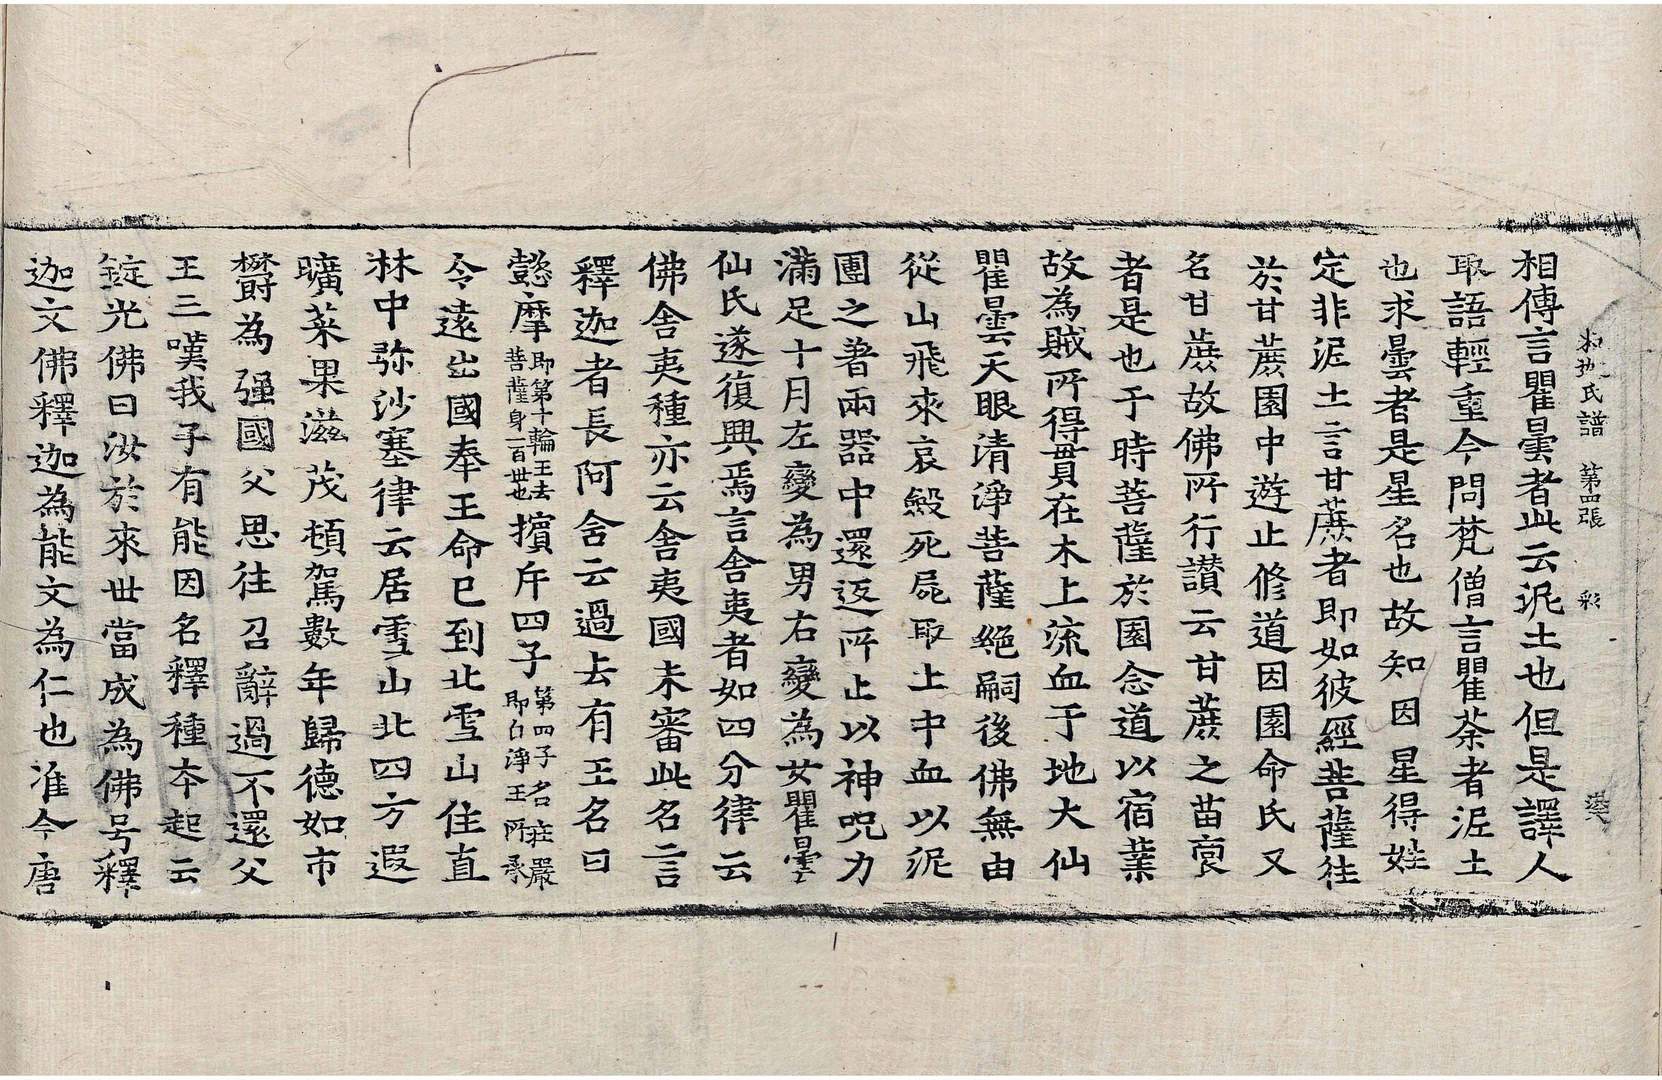 迦氏譜 第四張 彩
相傳言瞿曇者此云泥土也但是譯人
取語輕重今問梵僧言瞿荼者泥土
也求曇者是星名也故知因星得姓
定非泥土言甘蔗者即如彼經菩薩往
於甘蔗園中遊止修道因園命氏又
名甘蔗故佛所行讃云甘蔗之苗裔
者是也于時菩薩於園念道以宿業
故為賊所得貫在木上流血于地大仙
瞿曇天眼清淨菩薩絕嗣後佛無由
從山飛來哀殺死屍取上中血以泥
團之著兩器中還返所止以神呪力
滿足十月左變為男右變為女瞿曇
仙氏遂復興焉言舍夷者如四分律云
佛舍夷種亦云舍夷國未審此名言
釋迦者長阿舍云過去有王名曰
懿摩即第十輪王去菩薩身一百世也擯斥四子第四子名莊嚴即白淨王所承
令遠出國奉王命已到北雪山住直
林中弥沙塞律云居雪山北四方遐
曠菜果滋茂頓駕數年歸德如市
欝為强國父思往召辭過不還父
王三嘆我子有能因名釋種夲起云
錠光佛曰汝於來世當成為佛号釋
迦文佛釋迦為能文為仁也准今唐